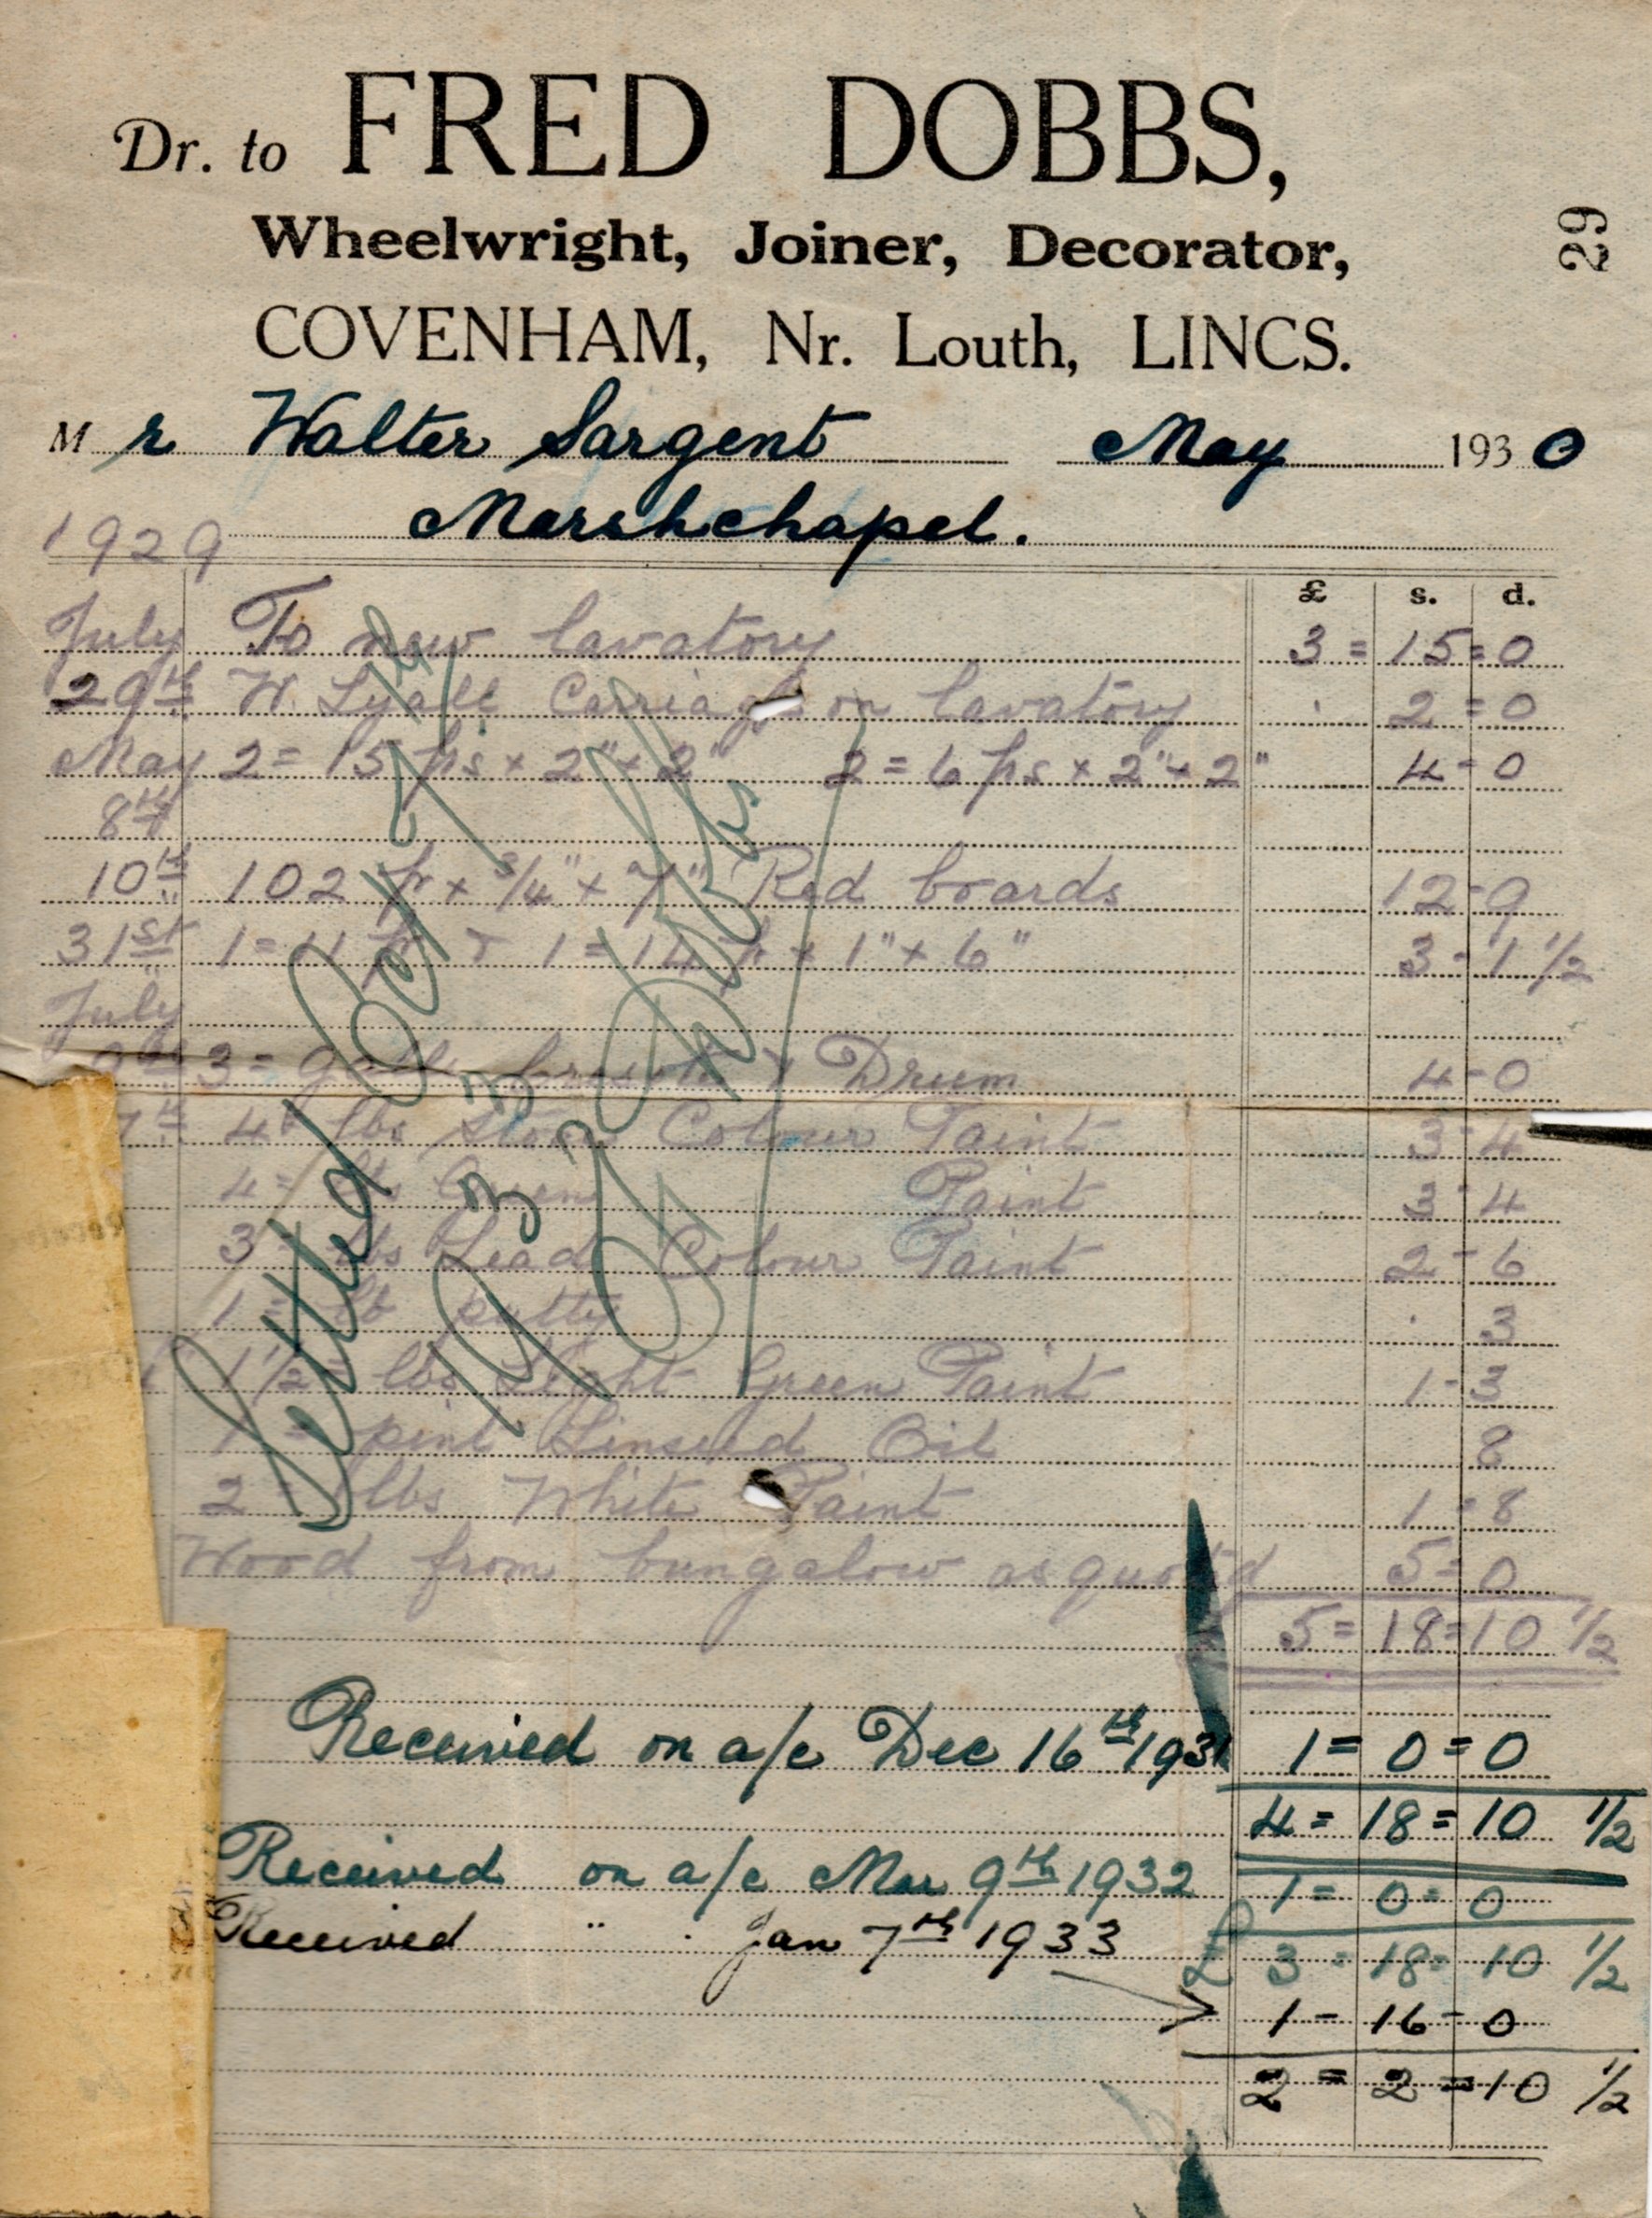 Dr. to FRED DOBBS,
Wheelwright, Joiner, Decorator,
COVENHAM, Nr. Louth, LINCS.
29
Mr Walter Sargent May 1930
Marshchapel.
1929
£ s. d.
July To new lavatory 3 = 15 = 0
29th W. Lyall Carriage on lavatory 2 = 0
May 2 = 15 fts × 2" × 2" 2 = 6 fts × 2" × 2" 4 - 0
8th
10th 102 ft × 3/4" × 7" Red boards 12 - 9
31st 1 = 11 ft & 1 = 14 ft × 1" × 6" 3 - 1 1/2
July
3 = galls & Drum 4 - 0
7th 4 lbs Stone Colour Paint 3 - 4
4 = lbs Green Paint 3 - 4
3 = lbs Lead Colour Paint 2 - 6
1 = lb putty 3
1 1/2 = lbs Light Green Paint 1 - 3
1 = pint Linseed Oil 8
2 = lbs White Paint 1 - 8
Wood from bungalow as quoted 5 = 0
5 = 18 = 10 1/2
Settled Oct 7th
1933
F Dobbs
Received on a/c Dec 16th 1931 1 = 0 = 0
4 = 18 = 10 1/2
Received on a/c Mar 9th 1932 1 = 0 = 0
£ 3 = 18 = 10 1/2
Received " Jan 7th 1933
1 - 16 - 0
2 = 2 = 10 1/2